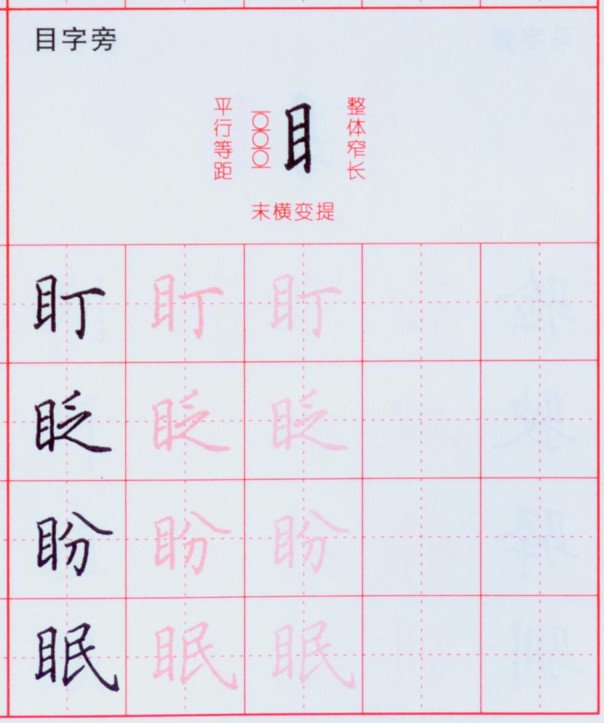 目字旁
平行等距
目
整体窄长
末横变提
盯 盯 盯
眨 眨 眨
盼 盼 盼
眠 眠 眠